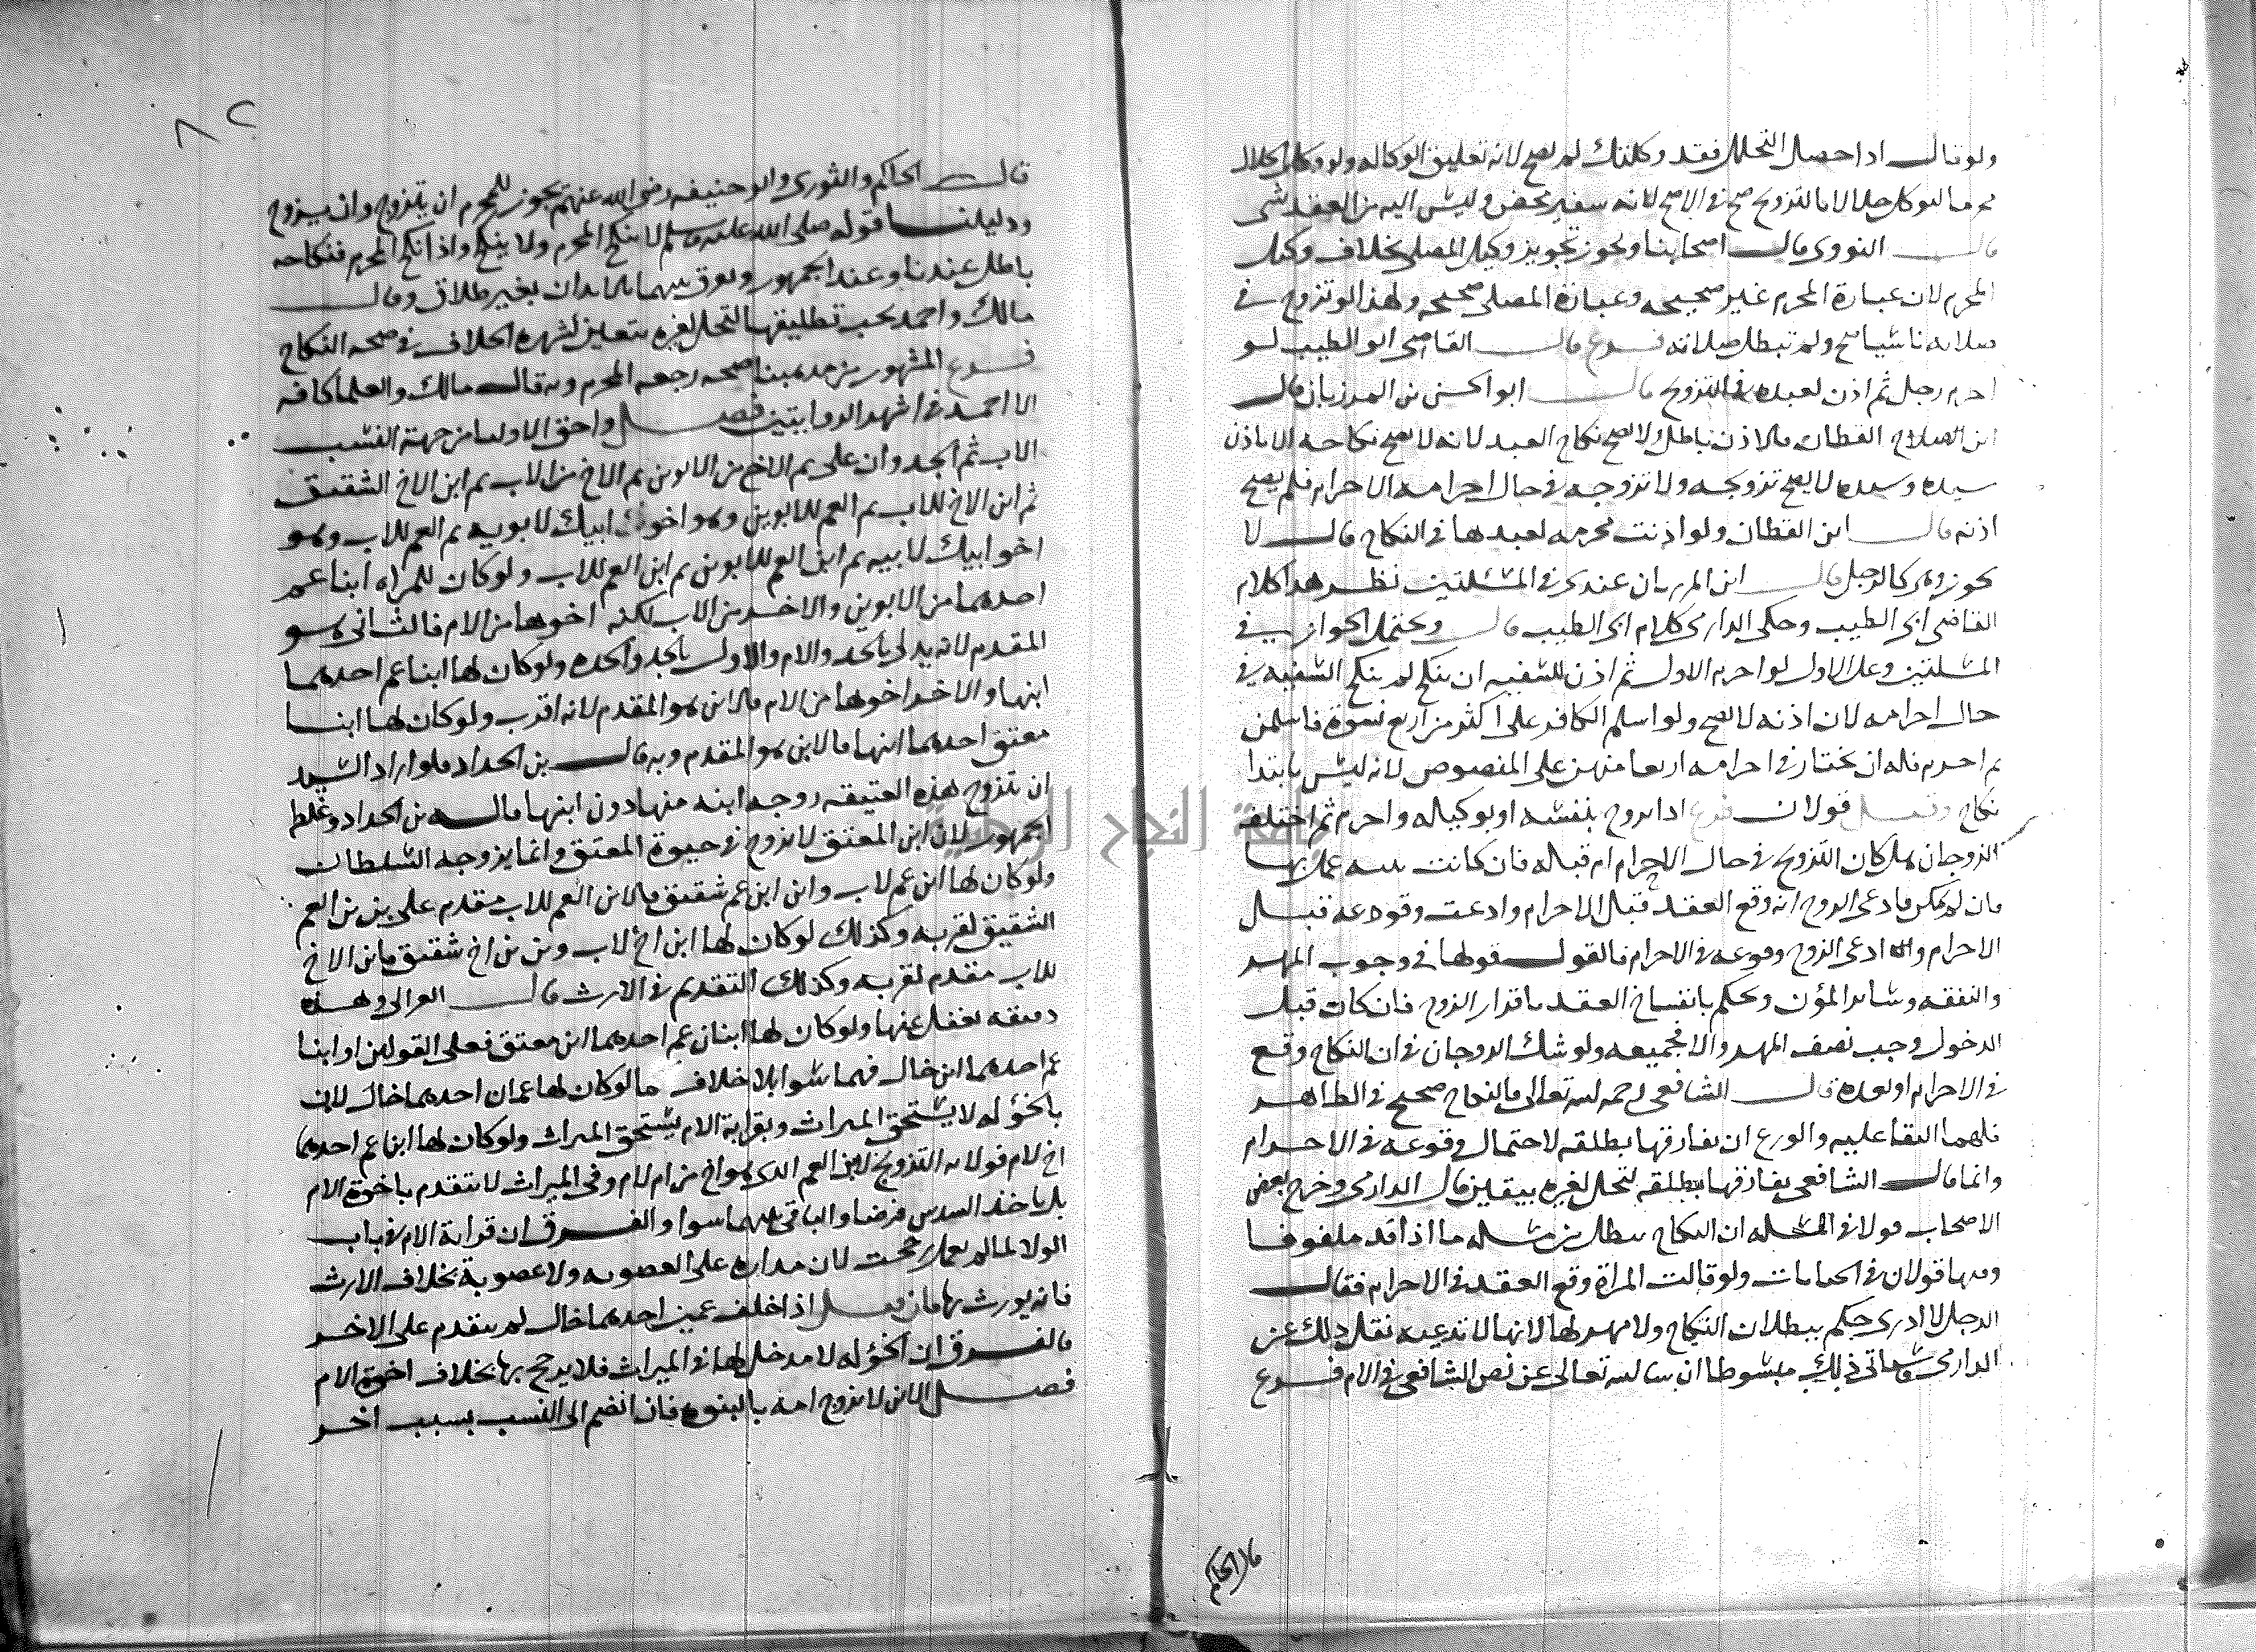 ولو قال اذا حصل التحلل فقد وكلتك لم يصح لانه تعليق الوكاله ولو وكل الحلال
محرما ليوكل حلالا بالتزويج صح في الاصح لانه سفير محض وليس اليه من العقد شي
قال النووي قال اصحابنا ويجوز تجويز وكيل المصلي بخلاف وكيل
المحرم لان عبارة المحرم غير صحيحه وعبارة المصلي صحيحه ولهذا لو تزوج في
صلاته ناسيا صح ولم تبطل صلاته فرع قال القاضي ابو الطيب لو
احرم رجل ثم اذن لعبده في التزويج قال ابو الحسن بن المرزبان قال
ابن القطان فالاذن باطل ولا يصح نكاح العبد لانه لا يصح نكاحه الا باذن
سيده وسيده لا يصح تزويجه ولا تزوجه في حال احرامه الاحرام فلم يصح
اذنه قال ابن القطان ولو اذنت محرمه لعبدها في النكاح قال لا
يجوز وهي كالرجل قال ابن المرزبان عندي في المسئلتين نظر هذا كلام
القاضي ابي الطيب وحكى الدارمي كلام ابي الطيب قال ويحتمل الجواز في
المسلتين وعلى الاول لو احرم الاول ثم اذن للسفيه ان ينكح لم ينكح السفيه في
حال احرامه لان اذنه لا يصح ولو اسلم الكافر على اكثر من اربع نسوة فاسلمن
ثم احرم فله ان يختار في احرامه اربعا منهن على المنصوص لانه ليس بابتدا
نكاح وقيل قولان فرع اذا تزوج بنفسه او بوكيله واحرم ثم اختلف
الزوجان هل كان التزويج في حال الاحرام ام قبله فان كانت بينه عمل بها
فان لم يكن فادعى الزوج انه وقع العقد قبل الاحرام وادعت وقوعه قبل
الاحرام وان ادعى الزوج وقوعه في الاحرام فالقول قولها في وجوب المهر
والنفقه وسائر المؤن ويحكم بانفساخ العقد باقرار الزوج فان كان قبل
الدخول وجب نصف المهر والا فجميعه ولو شك الزوجان في ان النكاح وقع
في الاحرام او بعده قال الشافعي رحمه الله تعالى فالنكاح صحيح في الظاهر
فلهما البقا عليه والورع ان يفارقها بطلقه لاحتمال وقوعه في الاحرام
وانما قال الشافعي يفارقها بطلقه لتحل لغيره بيقين قال الدارمي وخرج بعض
الاصحاب قولا في المسله ان النكاح يبطل من مسله ما اذا قد ملفوفا
وفيها قولان في الجنايات ولو قالت المراة وقع العقد في الاحرام فقال
الرجل لا ادري حكم ببطلان النكاح ولا مهر لها لانها لا تدعيه نقل ذلك عن
الدارمي وسياتي ذلك مبسوطا ان شا الله تعالى عن نص الشافعي في الام فرع
قال الحاكم
٨٢
قال الحاكم والثوري وابو حنيفه رضي الله عنهم يجوز للمحرم ان يتزوج وان يزوج
ودليلنا قوله صلى الله عليه وسلم لا ينكح المحرم ولا ينكح واذا نكح المحرم فنكاحه
باطل عندنا وعند الجمهور ويفرق بينهما بالابدان بغير طلاق وقال
مالك واحمد يجب تطليقها لتحل لغيره بيقين لشهرة الخلاف في صحه النكاح
فرع المشهور من مذهبنا صحه رجعه المحرم وبه قال مالك والعلما كافه
الا احمد في اشهر الروايتين فصل واحق الاوليا من جهة النسب
الاب ثم الجد وان على ثم الاخ من الابوين ثم الاخ من الاب ثم ابن الاخ الشقيق
ثم ابن الاخ للاب ثم العم للابوين وهو اخو ابيك لابويه ثم العم للاب وهو
اخو ابيك لابيه ثم ابن العم للابوين ثم ابن العم للاب ولو كان للمراه ابنا عم
احدهما من الابوين والاخر من الاب لكنه اخوها من الام فالثاني هو
المقدم لانه يدلي بالجد والام والاول بالجد والجده ولو كان لها ابنا عم احدهما
ابنها والاخر اخوها من الام فالابن هو المقدم لانه اقرب ولو كان لها ابنا
معتق احدهما ابنها فالابن هو المقدم وبه قال بن الحداد فلو اراد السيد
ان يتزوج هذه العتيقه زوجه ابنه منها دون ابنها قاله بن الحداد وغلط
الجمهور لان ابن المعتق لا يزوج في حيوة المعتق وانما يزوجه السلطان
ولو كان لها ابن عم لاب وابن ابن عم شقيق فالابن العم للاب مقدم على بن بن العم
الشقيق لقربه وكذلك لو كان لها ابن اخ لاب وبن بن اخ شقيق فابن الاخ
للاب مقدم لقربه وكذلك التقديم في الارث قال الغزالي وهذه
دقيقه يغفل عنها ولو كان لها ابنان عم احدهما ابن معتق فعلى القولين او ابنا
عم احدهما ابن خال فهما سوا بلا خلاف ما لو كان لها عمان احدهما خال لان
بالخؤله لا يستحق الميراث وبقرابة الام يستحق الميراث ولو كان لها ابنا عم احدهما
اخ لام فولايه التزويج لابن العم الذي هو اخ من ام لام وفي الميراث لا يتقدم باخوة الام
بل ياخذ السدس فرضا والباقي بينهما سوا والفرق ان قرابة الام في باب
الولا لما لم يعمل رجحت لان مداره على العصوبه ولا عصوبة بخلاف الارث
فانه يورث بها فان قيل اذا خلف عمين احدهما خال لم يتقدم على الاخر
فالفرق ان الخؤله لا مدخل لها في الميراث فلا يرجح بها بخلاف اخوة الام
فصل الابن لا يزوج امه بالبنوه فان انضم الى النسب بسبب اخر